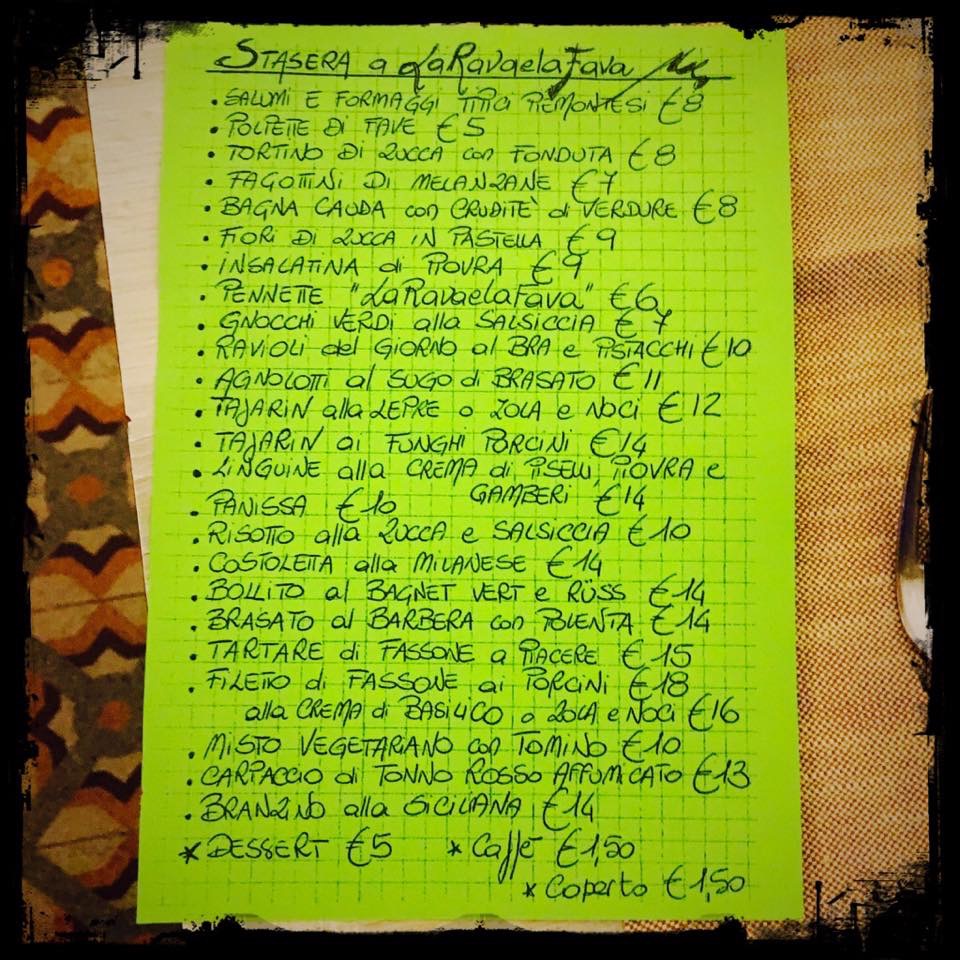 STASERA a LaRavaelaFava
• SALUMI E FORMAGGI TIPICI PIEMONTESI €8
• POLPETTE DI FAVE €5
• TORTINO DI ZUCCA con FONDUTA €8
• FAGOTTINI DI MELANZANE €7
• BAGNA CAUDA con CRUDITÈ di VERDURE €8
• FIORI DI ZUCCA IN PASTELLA €9
• INSALATINA di PIOVRA €9
• PENNETTE "LaRavaelaFava" €6
• GNOCCHI VERDI alla SALSICCIA €7
• RAVIOLI del GIORNO al BRA e PISTACCHI €10
• AGNOLOTTI al SUGO di BRASATO €11
• TAJARIN alla LEPRE o ZOLA e NOCI €12
• TAJARIN ai FUNGHI PORCINI €14
• LINGUINE alla CREMA di PISELLI, PIOVRA e
GAMBERI €14
• PANISSA €10
• RISOTTO alla ZUCCA e SALSICCIA €10
• COSTOLETTA alla MILANESE €14
• BOLLITO al BAGNET VERT e RÜSS €14
• BRASATO al BARBERA con POLENTA €14
• TARTARE di FASSONE a PIACERE €15
• FILETTO di FASSONE ai PORCINI €18
alla CREMA di BASILICO o ZOLA e NOCI €16
• MISTO VEGETARIANO con TOMINO €10
• CARPACCIO di TONNO ROSSO AFFUMICATO €13
• BRANZINO alla SICILIANA €14
* DESSERT €5 * Caffè €1,50
* Coperto €1,50